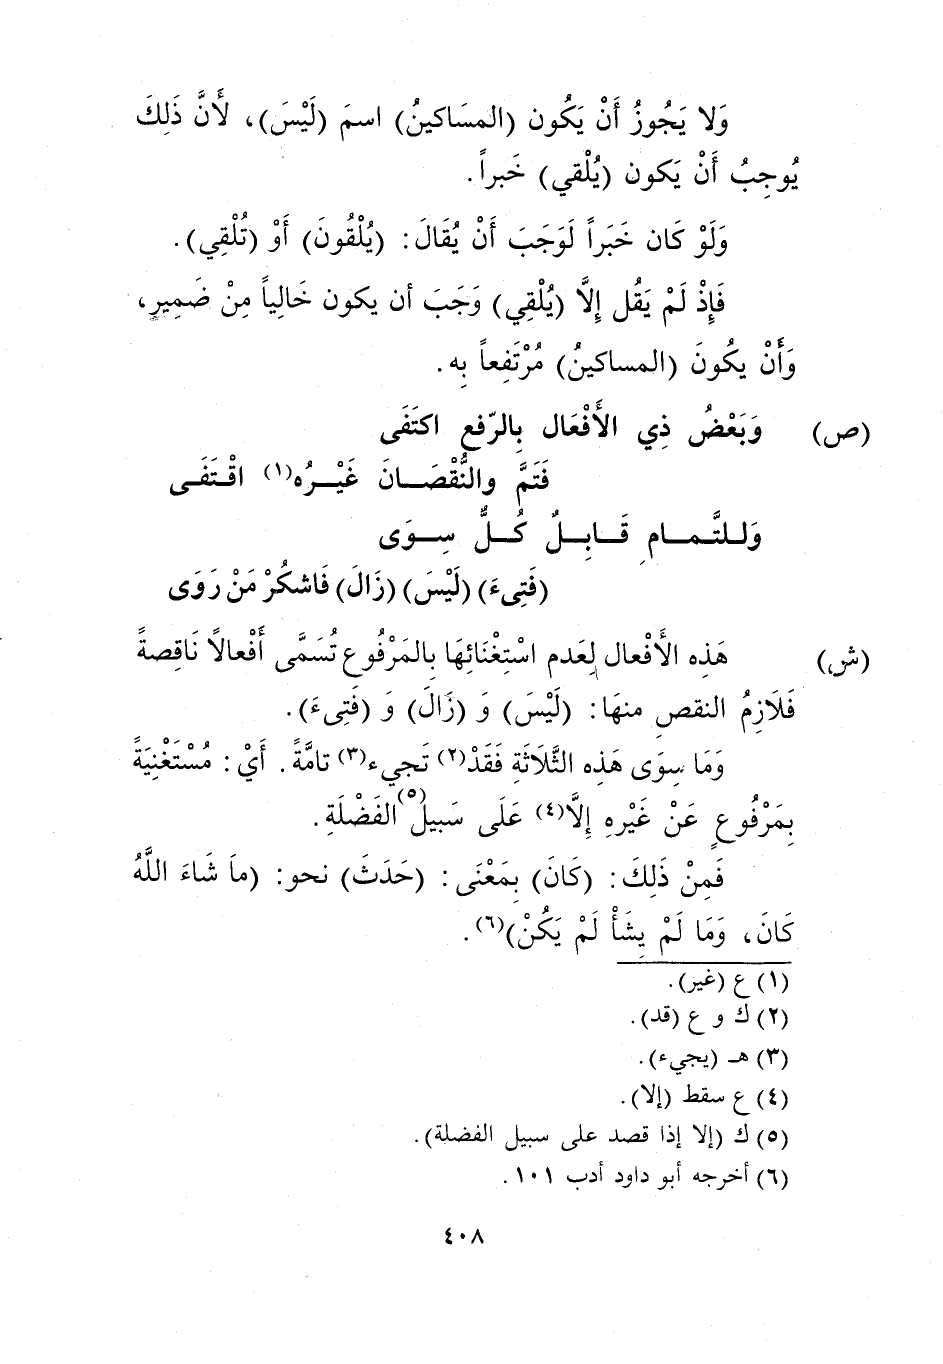 وَلا يَجُوزُ أَنْ يَكُون (المسَاكينُ) اسمَ (لَيْسَ)، لأَنَّ ذَلِكَ
يُوجِبُ أَنْ يَكون (يُلْقي) خَبراً.
وَلَوْ كَان خَبَراً لَوَجَبَ أَنْ يُقَالَ: (يُلْقُونَ) أَوْ (تُلْقِي).
فَإِذْ لَمْ يَقُل إِلَّا (يُلْقِي) وَجَبَ أن يكون خَالِياً مِنْ ضَمِيرٍ،
وَأَنْ يكُونَ (المساكينُ) مُرْتَفِعاً بِه.
(ص) وَبَعْضُ ذِي الأَفْعَال بِالرّفعِ اكتَفَى
فَتَمَّ والنُّقْصَـانَ غَيْـرُه(١) اقْـتَفَـى
وَلـلتَّـمـامِ قَـابِـلٌ كُـلُّ سِـوَى
(فَتِىءَ) (لَيْسَ) (زَالَ) فَاشكُرْ مَنْ رَوَى
(ش) هَذِه الأَفْعال لِعَدم اسْتِغْنَائِهَا بِالمَرْفُوعِ تُسَمَّى أَفْعالًا نَاقِصةً
فَلَازِمُ النقصِ منهَا: (لَيْسَ) وَ (زَالَ) وَ (فَتِىءَ).
وَمَا سِوَى هَذِه الثَّلَاثَةِ فَقَدْ(٢) تَجيء(٣) تامَّةً. أَيْ: مُسْتَغْنِيَةً
بِمَرْفُوعٍ عَنْ غَيْرِه إِلَّا(٤) عَلَى سَبيلِ(٥) الفَضْلَةِ.
فَمِنْ ذَلِكَ: (كَانَ) بِمَعْنَى: (حَدَثَ) نحو: (ماَ شَاءَ اللَّهُ
كَانَ، وَمَا لَمْ يشَأْ لَمْ يَكُنْ)(٦).
(١) ع (غير).
(٢) ك و ع (قد).
(٣) هـ (يجيء).
(٤) ع سقط (إلا).
(٥) ك (إلا إذا قصد على سبيل الفضلة).
(٦) أخرجه أبو داود أدب ١٠١.
٤٠٨